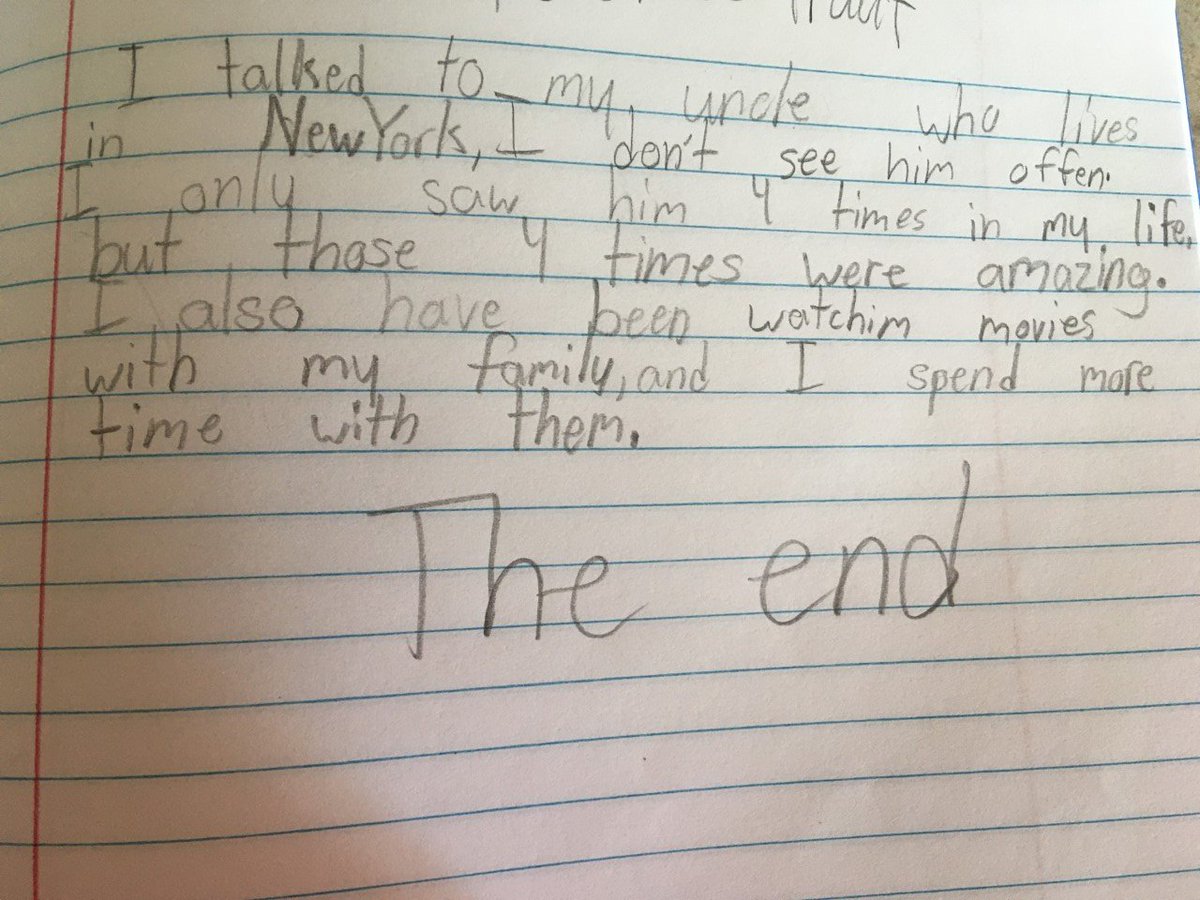 I talked to my uncle who lives
in NewYork, I don't see him offen.
I only saw him 4 times in my life,
but those 4 times were amazing.
I also have been watchim movies
with my family, and I spend more
time with them.
The end